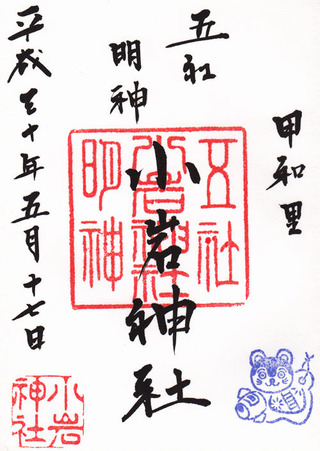 甲和里
五社
明神
小岩神社
平成三十年五月十七日
五社
小岩神社
明神
小岩
神社